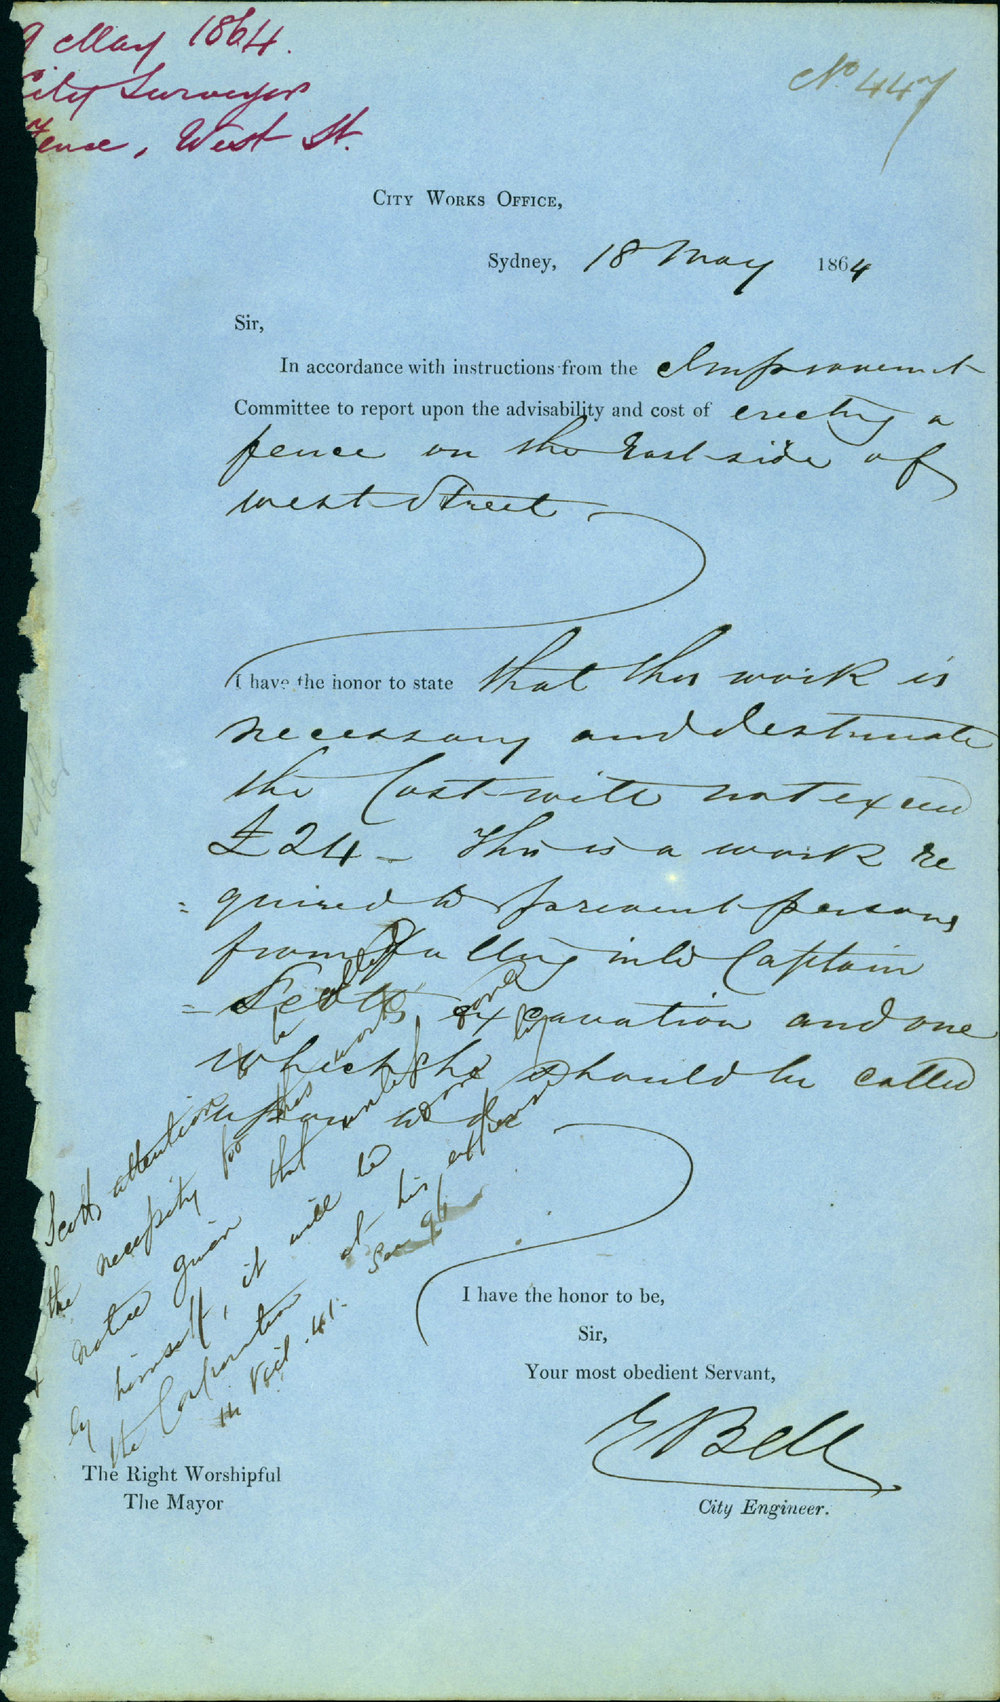 9 May 1864.
City Surveyor
Fence, West St.
No 447
CITY WORKS OFFICE,
Sydney, 18 May 1864
Sir,
In accordance with instructions from the Improvement
Committee to report upon the advisability and cost of erecting a
fence on the East side of
West Street
I have the honor to state that this work is
necessary and I estimate
the Cost will not exceed
£24 - This is a work re
= quired to prevent persons
from falling into Captain
= Scott's excavation and one
which he should be called
upon to do
Scotts attention to be called
the necessity for this work &
notice given that unless done
by himself, it will be done by
the Corporation at his expense
Vol. 41.
I have the honor to be,
Sir,
Your most obedient Servant,
E Bell
City Engineer.
The Right Worshipful
The Mayor